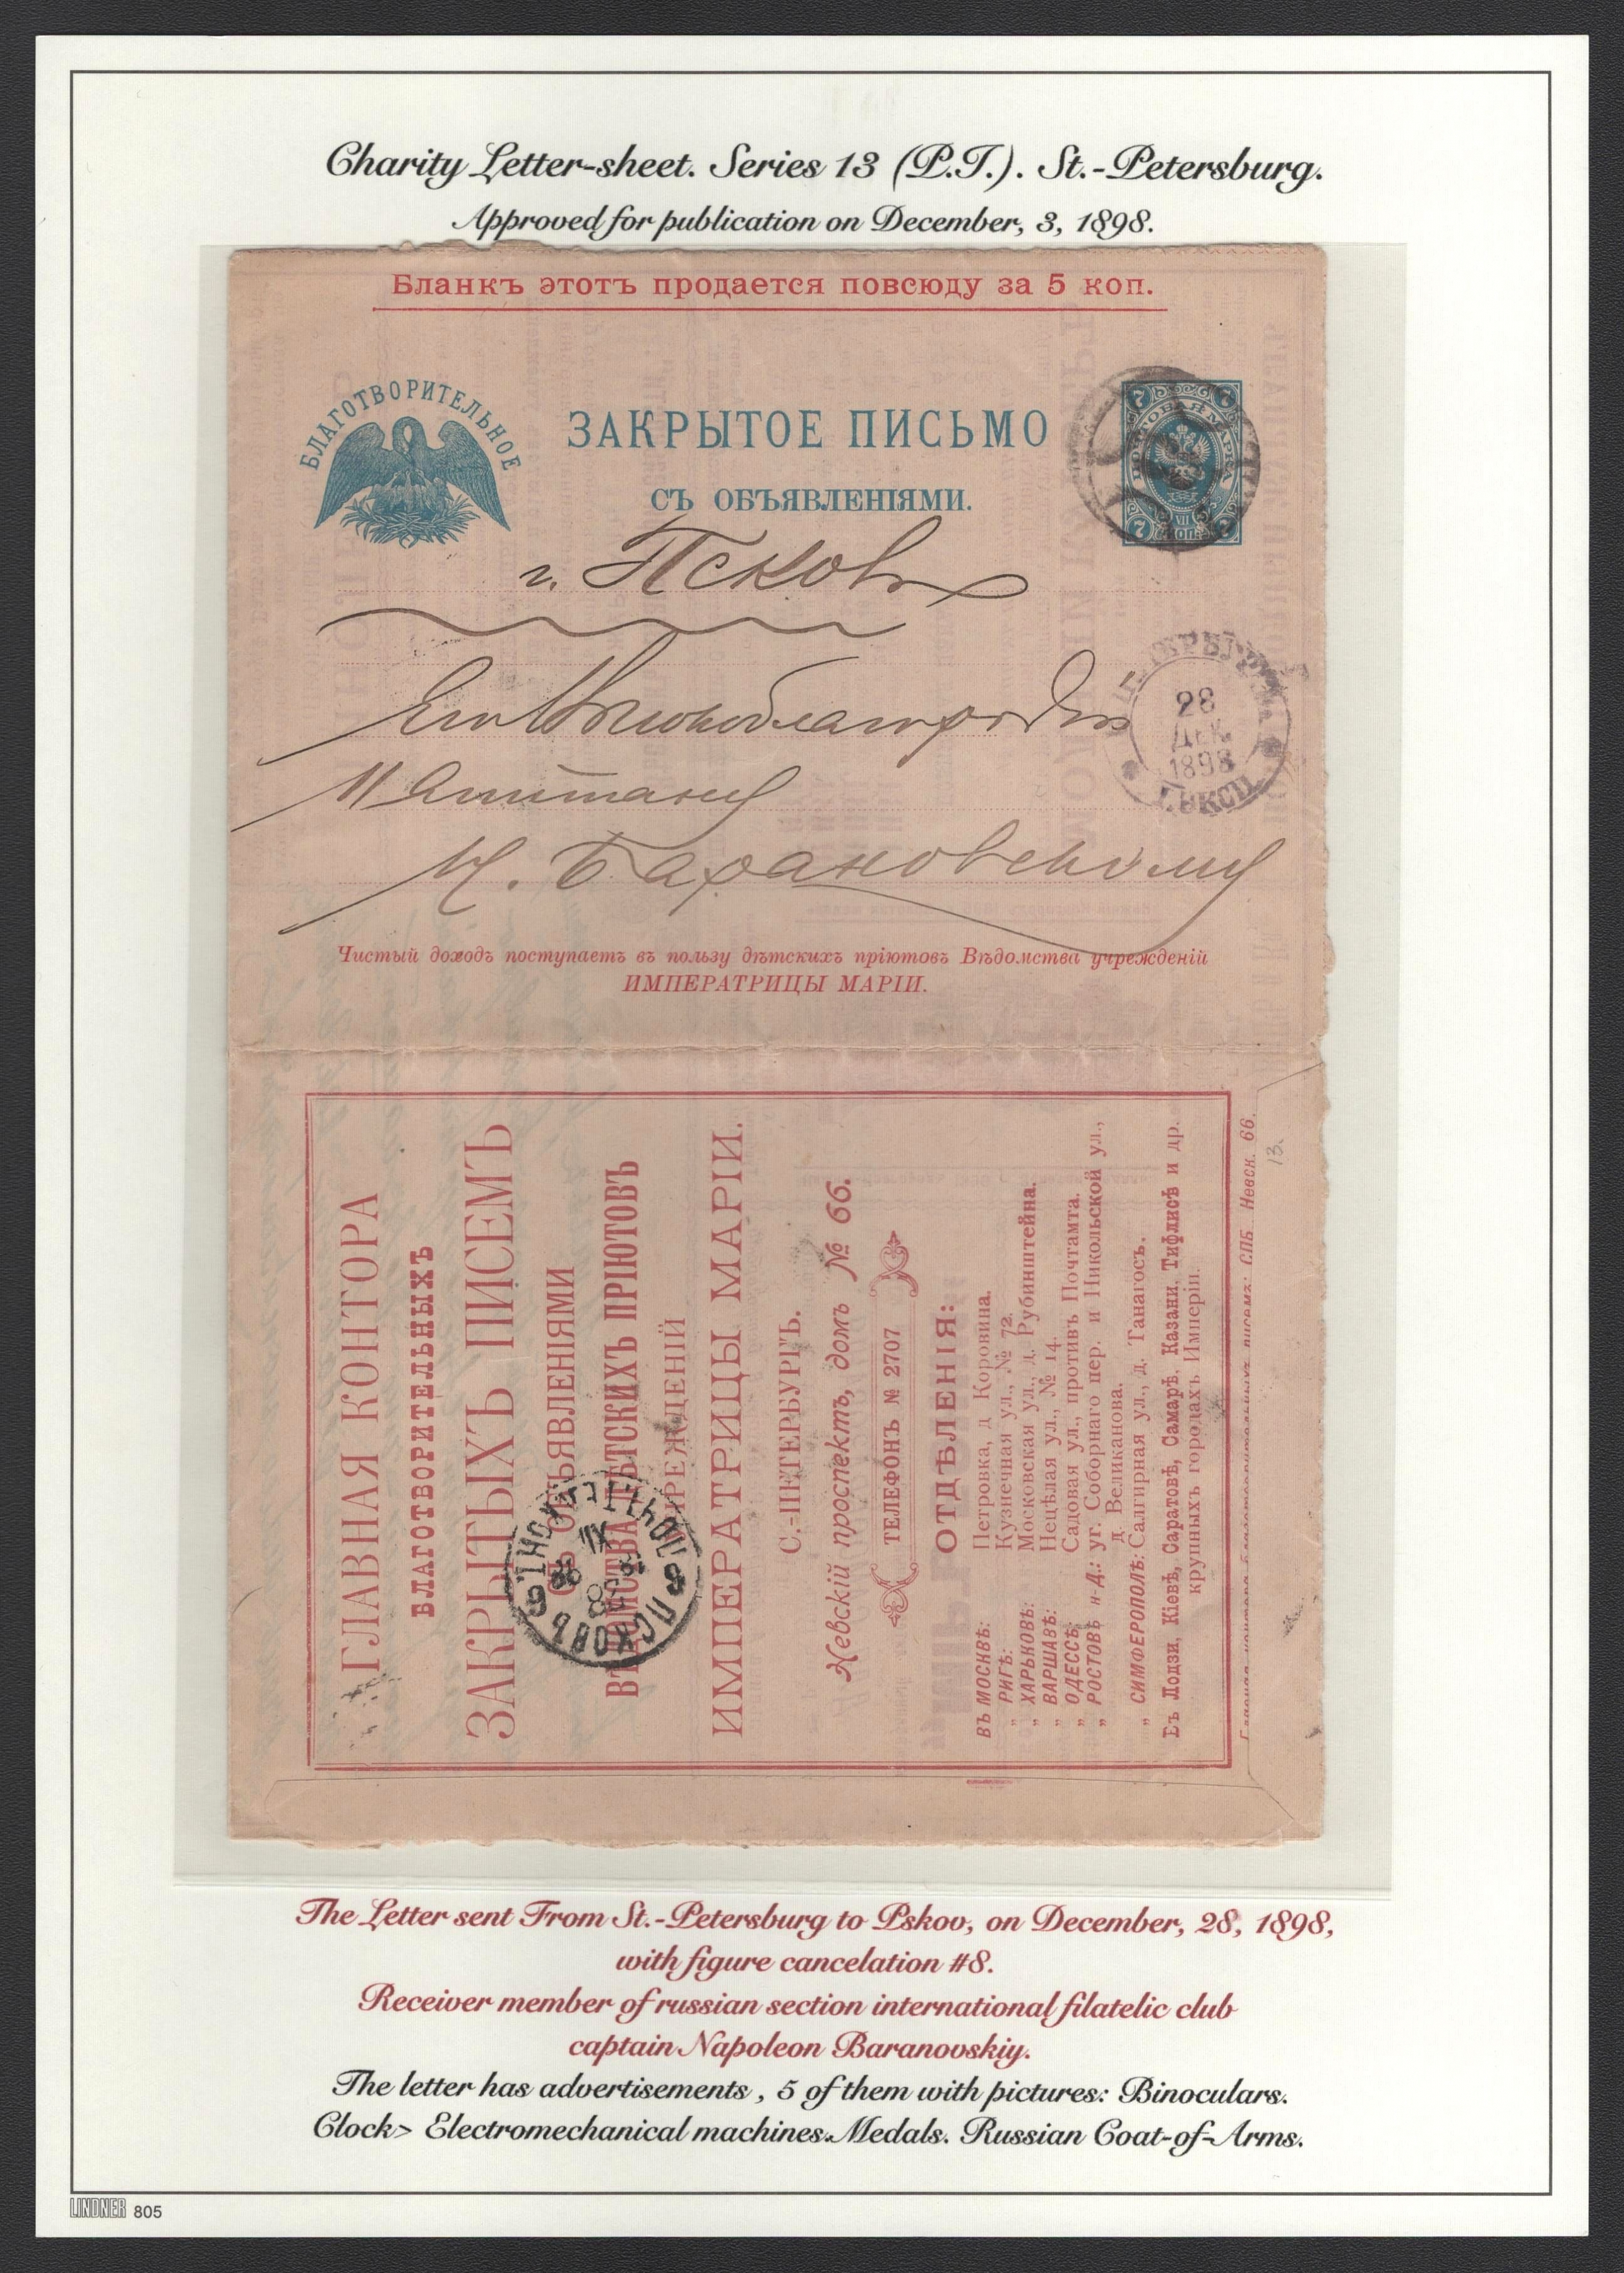 Charity Letter-sheet. Series 13 (P.T.). St.-Petersburg.
Approved for publication on December, 3, 1898.
Бланкъ этотъ продается повсюду за 5 коп.
БЛАГОТВОРИТЕЛЬНОЕ
ЗАКРЫТОЕ ПИСЬМО
СЪ ОБЪЯВЛЕНІЯМИ.
7 7
ПОЧТОВАЯ МАРКА
7 КОП. 7
г. Псковъ
Его Высокоблагородію
28
ДЕК.
1898
Капитану
Н. Барановскому
Чистый доходъ поступаетъ въ пользу дѣтскихъ пріютовъ Вѣдомства учрежденій
ИМПЕРАТРИЦЫ МАРІИ.
ГЛАВНАЯ КОНТОРА
БЛАГОТВОРИТЕЛЬНЫХЪ
ЗАКРЫТЫХЪ ПИСЕМЪ
СЪ ОБЪЯВЛЕНІЯМИ
ВѢДОМСТВА ДѢТСКИХЪ ПРІЮТОВЪ
УЧРЕЖДЕНІЙ
ИМПЕРАТРИЦЫ МАРІИ.
С.-ПЕТЕРБУРГЪ.
Невскій проспектъ, домъ № 66.
ТЕЛЕФОНЪ № 2707
ОТДѢЛЕНІЯ:
ВЪ МОСКВѢ: Петровка, д Коровина.
„ РИГѢ: Кузнечная ул., № 72.
„ ХАРЬКОВѢ: Московская ул., д. Рубинштейна.
„ ВАРШАВѢ: Нецѣлая ул., № 14.
„ ОДЕССѢ: Садовая ул., противъ Почтамта.
„ РОСТОВѢ н-Д.: уг. Соборнаго пер. и Никольской ул.,
д. Великанова.
„ СИМФЕРОПОЛѢ: Салгирная ул., д. Танагосъ.
Въ Лодзи, Кіевѣ, Саратовѣ, Самарѣ, Казани, Тифлисѣ и др.
крупныхъ городахъ Имперіи.
Главная контора благотворительныхъ писемъ: СПБ. Невск. 66.
13.
ПСКОВЪ
The Letter sent From St.-Petersburg to Pskov, on December, 28, 1898,
with figure cancelation #8.
Receiver member of russian section international filatelic club
captain Napoleon Baranovskiy.
The letter has advertisements , 5 of them with pictures: Binoculars.
Clock> Electromechanical machines. Medals. Russian Coat-of-Arms.
LINDNER 805